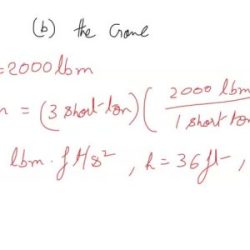 (b) the Crane
=2000 lbm
n = (3 short-ton) ( 2000 lbm
1 short to
lbm · ft/s², h = 36 ft,